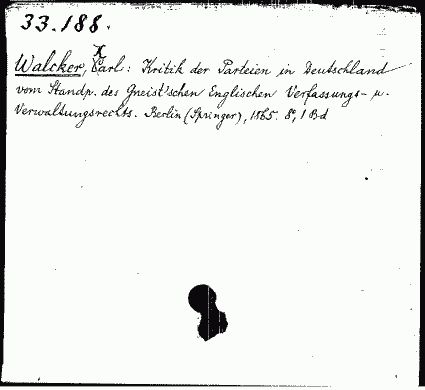 33.188.
K
Walcker, Carl: Kritik der Parteien in Deutschland
vom Standp. des Gneist'schen Englischen Verfassungs- u.
Verwaltungsrechts. Berlin (Springer), 1865. 8°, 1 Bd